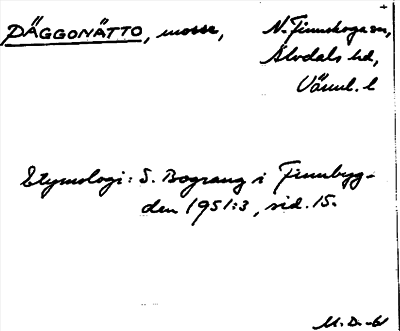 DÄGGONÄTTO, mosse, N. Finnskoga sn,
Älvdals hd,
Värml. l
Etymologi: S. Bograng i Finnbyg-
den 1951:3, sid. 15.
M.D.-61